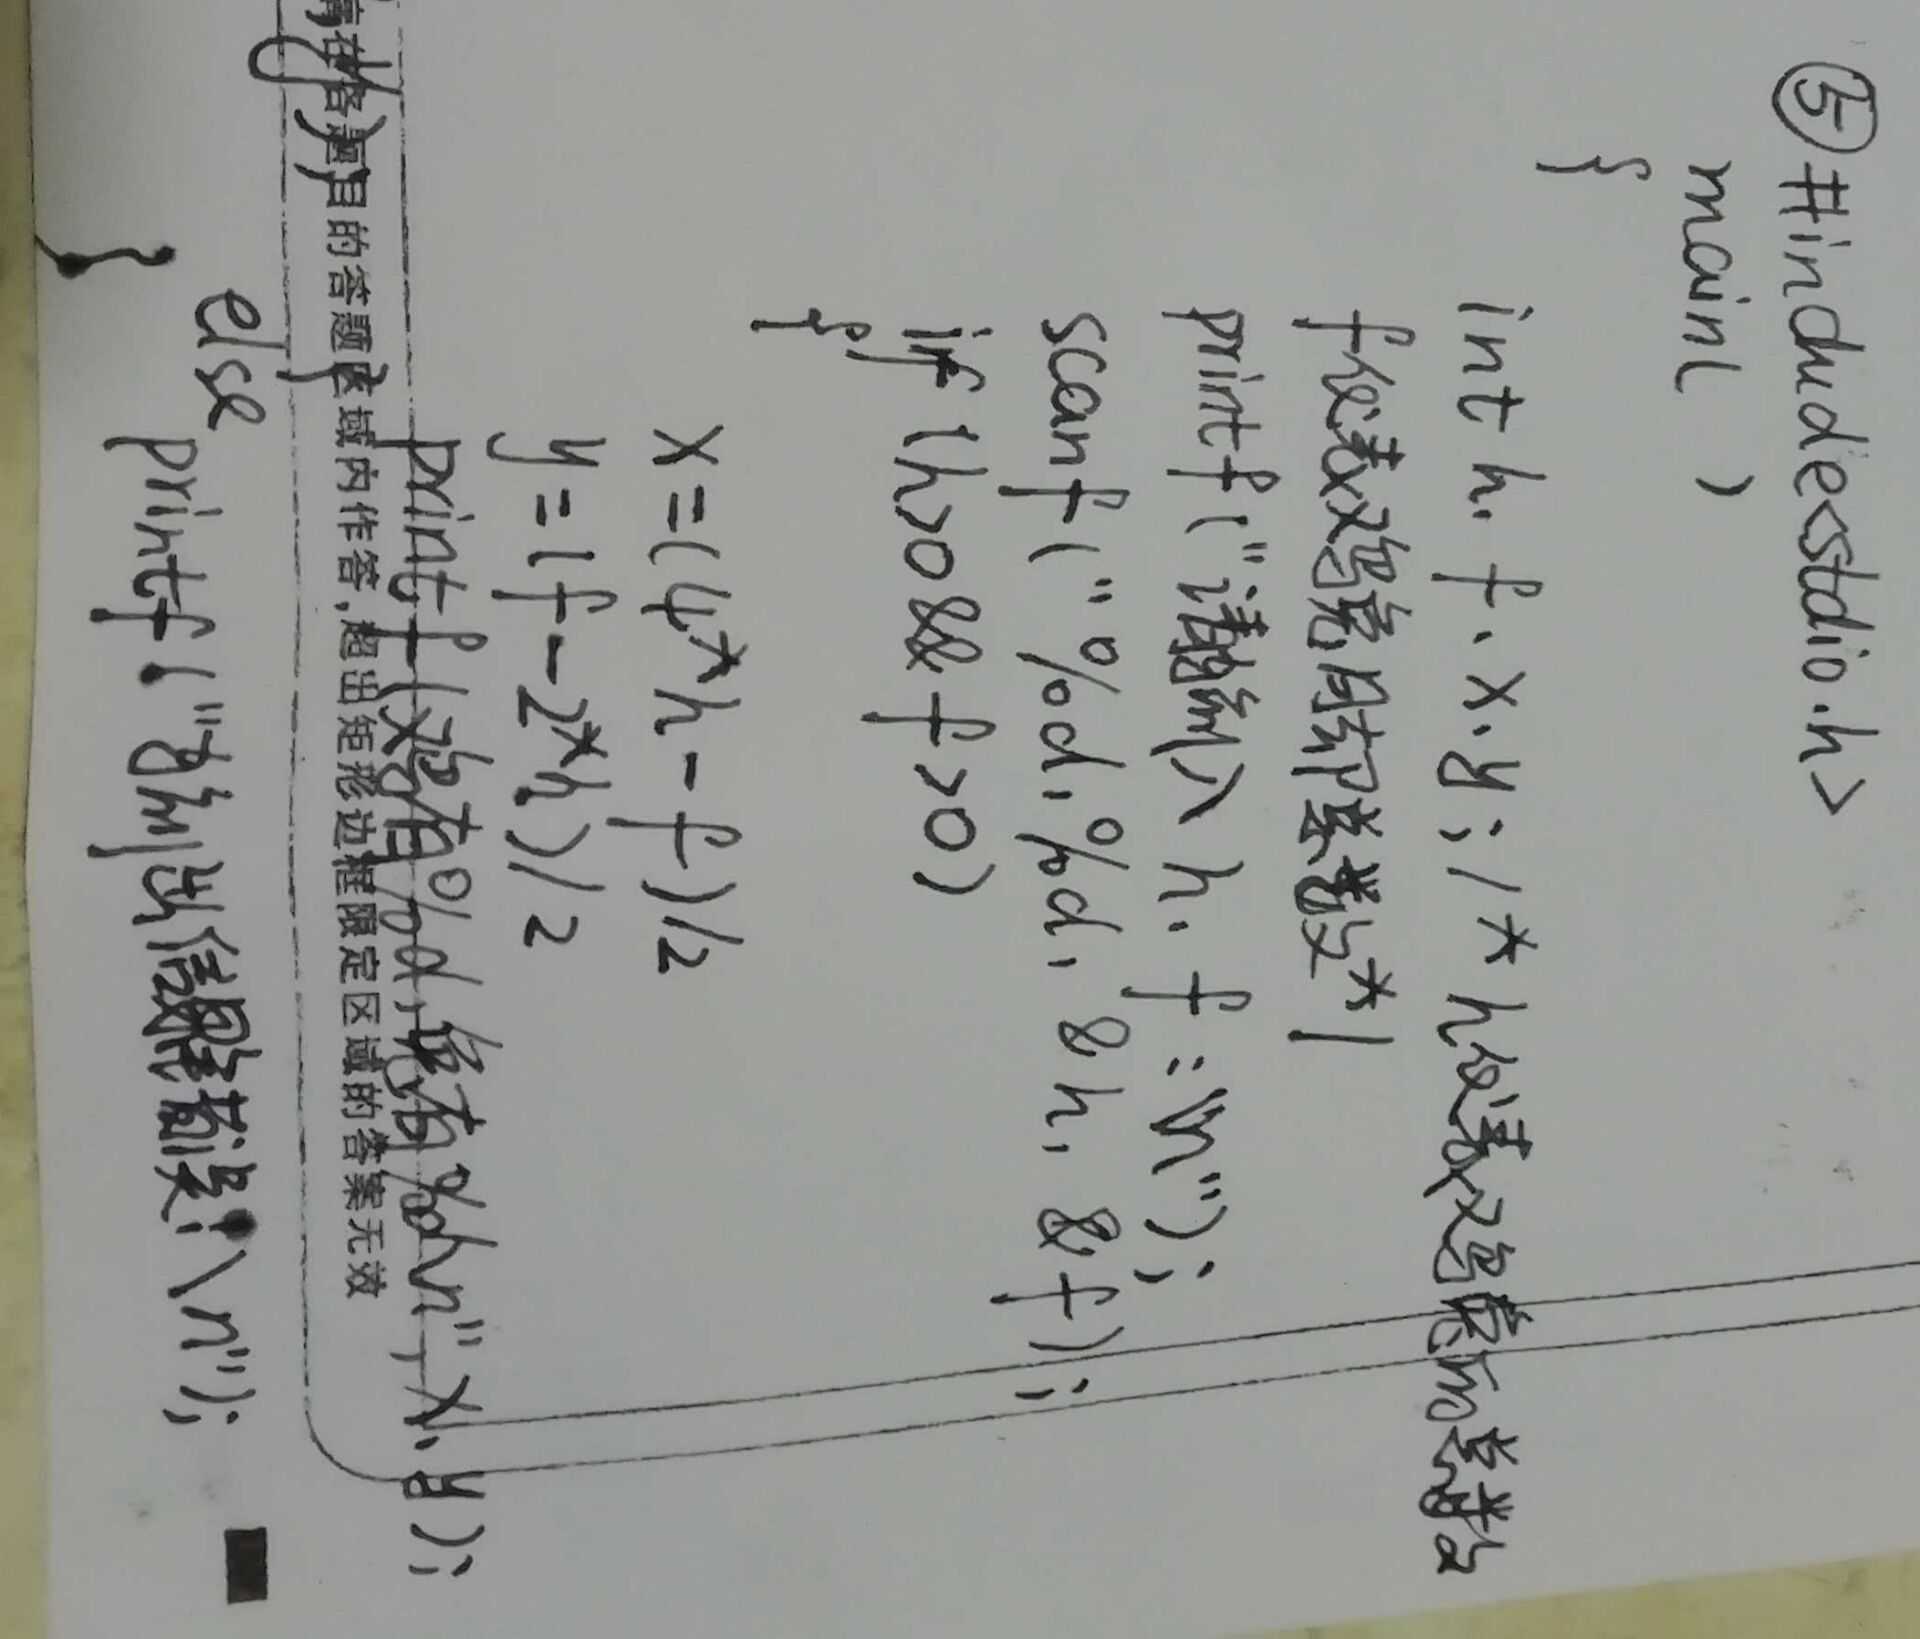 ⑤#include<stdio.h>
main( )
{
int h. f. x. y; /* h代表鸡兔的总数
f代表鸡兔脚总数*/
printf("请输入 h. f :\n");
scanf("%d,%d,&h,&f);
if (h>0&&f>0)
{
x=(4*h-f)/2
y=(f-2*h)/2
printf(鸡有%d,兔有%d\n",x.y);
}
请在各题目的答题区域内作答,超出矩形边框限定区域的答案无效
else
printf("输出信息错误!\n");
}